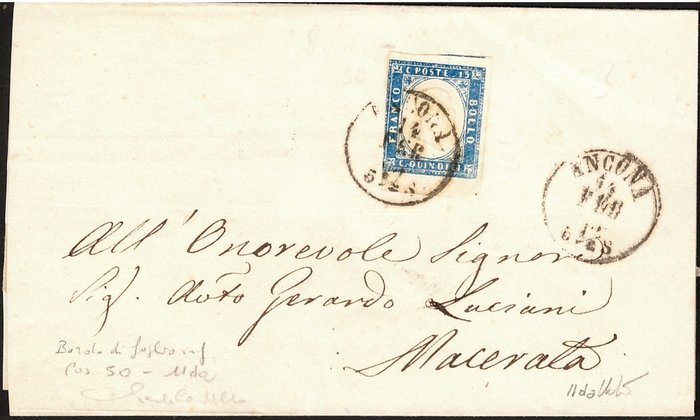 C. POSTE 15
FRANCO
BOLLO
C. QUINDICI
ANCONA
14
FEB
5½ S
ANCONA
14
FEB
5½ S
All' Onorevole Signore
Sig. Dotto Gerardo Luciani
Macerata
Bordo di foglio inf
Pos. 50 - 11da
11da